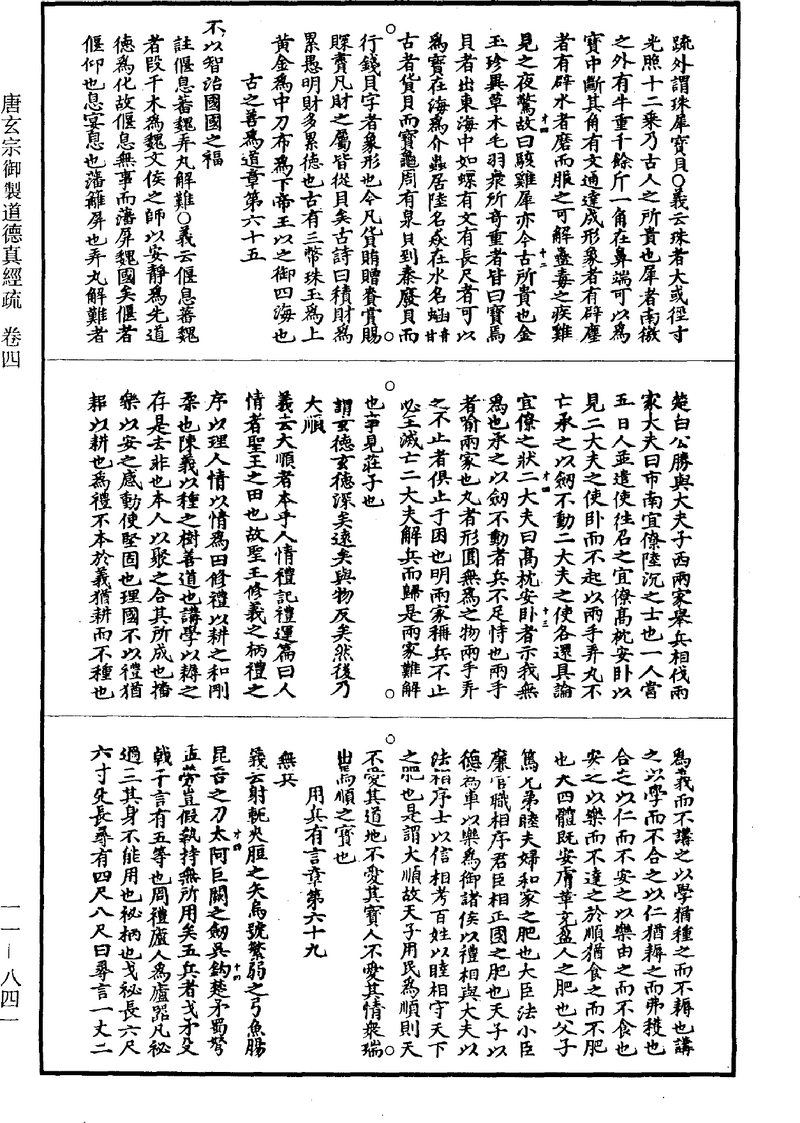 唐玄宗御製道德真經疏 卷四
一一—八四一
疏外謂珠犀寶貝〇義云珠者大或徑寸
光照十二乘乃古人之所貴也犀者南徼
之外有牛重千餘斤一角在鼻端可以為
寶中斷其角有文通達成形象者有辟塵
者有辟水者磨而服之可解蠱毒之疾雞
見之夜驚故曰駭雞犀亦今古所貴也金
玉珍異草木毛羽衆所奇重者皆曰寶焉
貝者出東海中如螺有文有長尺者可以
為寶在海為介蟲居陸名猋在水名蜬音甘
古者貨貝而寶龜周有泉貝到秦廢貝而
行錢貝字者象形也今凡貨賄贈賚賞賜
賝賮凡財之屬皆從貝矣古詩曰積財為
累愚明財多累德也古有三幣珠玉為上
黃金為中刀布為下帝王以之御四海也
古之善為道章第六十五
不以智治國國之福
註偃息蕃魏弄丸解難〇義云偃息蕃魏
者段干木為魏文侯之師以安靜為先道
德為化故偃息無事而藩屏魏國矣偃者
偃仰也息宴息也藩籬屏也弄丸解難者
楚白公勝與大夫子西兩家舉兵相伐兩
家大夫曰市南宜僚陸沉之士也一人當
五日人並遣使往召之宜僚高枕安卧以
見二大夫之使卧而不起以兩手弄丸不
亡承之以劒不動二大夫之使各還具論
宜僚之狀二大夫曰高枕安卧者示我無
為也承之以劒不動者兵不足恃也兩手
者喻兩家也丸者形圓無為之物兩手弄
之不止者俱止于困也明兩家稱兵不止
必至滅亡二大夫解兵而歸是兩家難解
也事見莊子也
謂玄德玄德深矣遠矣與物反矣然後乃
大順
義云大順者本乎人情禮記禮運篇曰人
情者聖王之田也故聖王修義之柄禮之
序以理人情以情為田修禮以耕之和剛
柔也陳義以種之樹善道也講學以耨之
存是去非也本人以聚之合其所成也播
樂以安之感動使堅固也理國不以禮猶
耜以耕也為禮不本於義猶耕而不種也
為義而不講之以學猶種之而不耨也講
之以學而不合之以仁猶耨之而弗穫也
合之以仁而不安之以樂由之而不食也
安之以樂而不達之於順猶食之而不肥
也大四體既安膚革充盈人之肥也父子
篤兄弟睦夫婦和家之肥也大臣法小臣
廉官職相序君臣相正國之肥也天子以
德為車以樂為御諸侯以禮相與大夫以
法相序士以信相考百姓以睦相守天下
之肥也是謂大順故天子用民為順則天
不愛其道地不愛其寶人不愛其情衆瑞
出焉順之寶也
用兵有言章第六十九
無兵
義云射軛夾脰之矢烏號繁弱之弓魚腸
昆吾之刀太阿巨闕之劒吳鈎楚矛蜀弩
孟勞豈假執持無所用矣五兵者戈矛殳
戟干言有五等也周禮廬人為廬器凡柲
過三其身不能用也柲柄也戈柲長六尺
六寸殳長尋有四尺八尺曰尋言一丈二